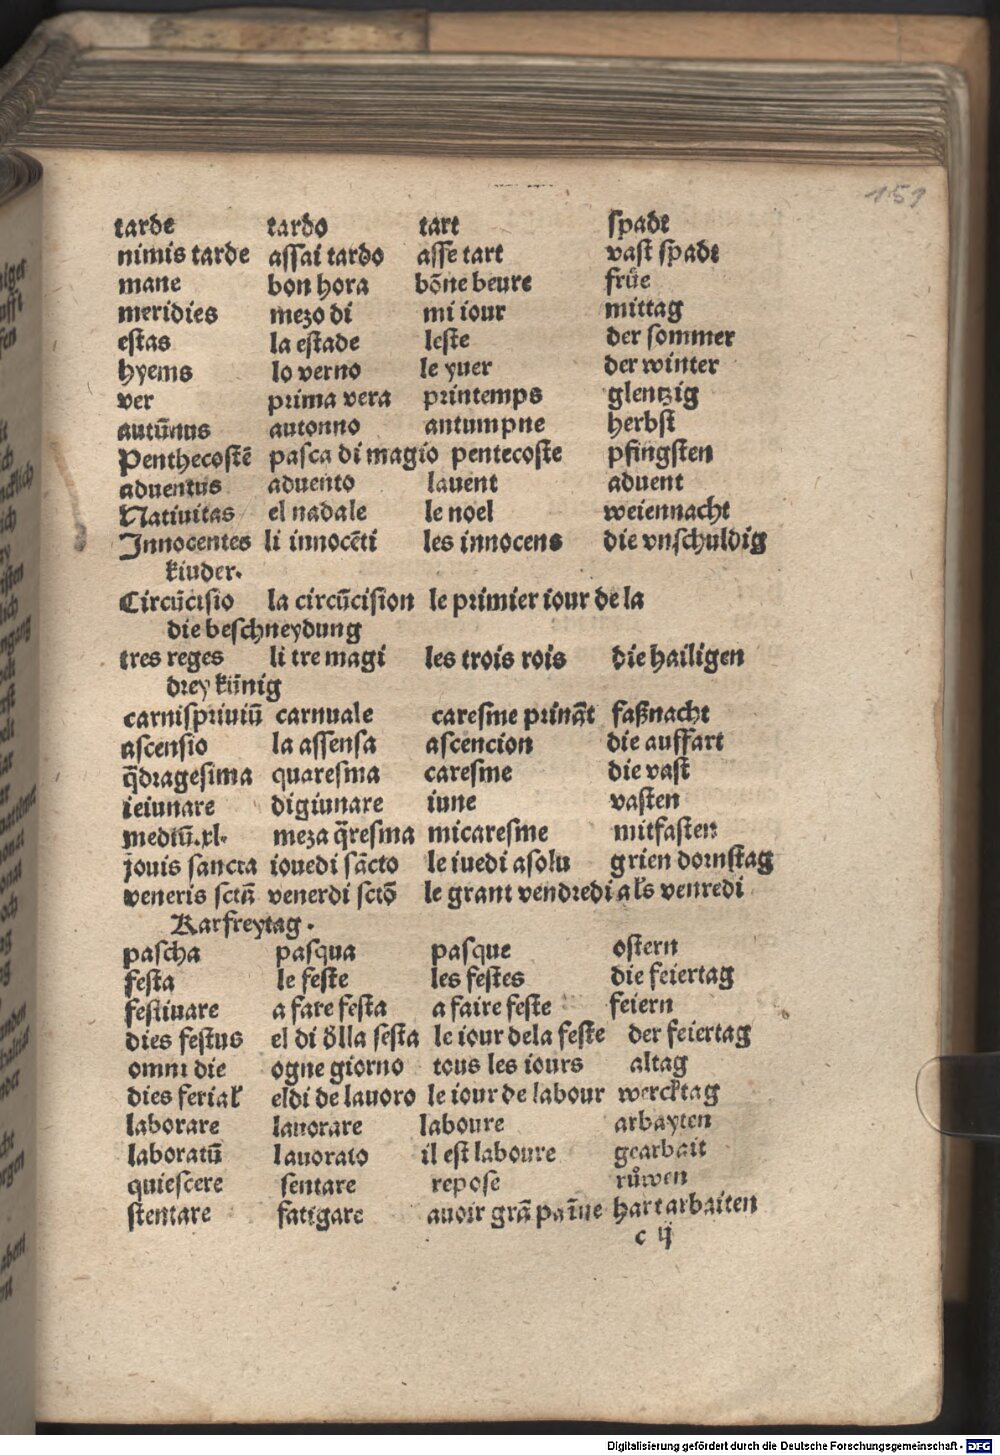 151
tarde tardo tart spadt
nimis tarde assai tardo asse tart vast spadt
mane bon hora bōne beure frůe
meridies mezo di mi iour mittag
estas la estade leste der sommer
hyems lo verno le yuer der winter
ver prima vera printemps glentzig
autūnus autonno antumpne herbst
Penthecostē pasca di magio pentecoste pfingsten
aduentus aduento lauent aduent
Natiuitas el nadale le noel weiennacht
Innocentes li innocēti les innocens die vnschuldig
kinder.
Circūcisio la circūcision le primier iour de la
die beschneydung
tres reges li tre magi les trois rois die hailigen
drey künig
carnispriuiū carnuale caresme prināt faßnacht
ascensio la assensa ascencion die auffart
q̄dragesima quaresma caresme die vast
ieiunare digiunare iune vasten
mediū.xl. meza q̄resma micaresme mitfasten
jouis sancta iouedi sācto le iuedi asolu grien dornstag
veneris sctā venerdi sctō le grant vendredi als venredi
Karfreytag.
pascha pasqua pasque ostern
festa le feste les festes die feiertag
festiuare a fare festa a faire feste feiern
dies festus el di d̄lla festa le iour dela feste der feiertag
omni die ogne giorno tous les iours altag
dies ferial eldi de lauoro le iour de labour wercktag
laborare lauorare laboure arbayten
laboratū lauorato il est laboure gearbait
quiescere sentare repose růwen
stentare fatigare auoir grā paīne hart arbaiten
c ij
Digitalisierung gefördert durch die Deutsche Forschungsgemeinschaft - DFG